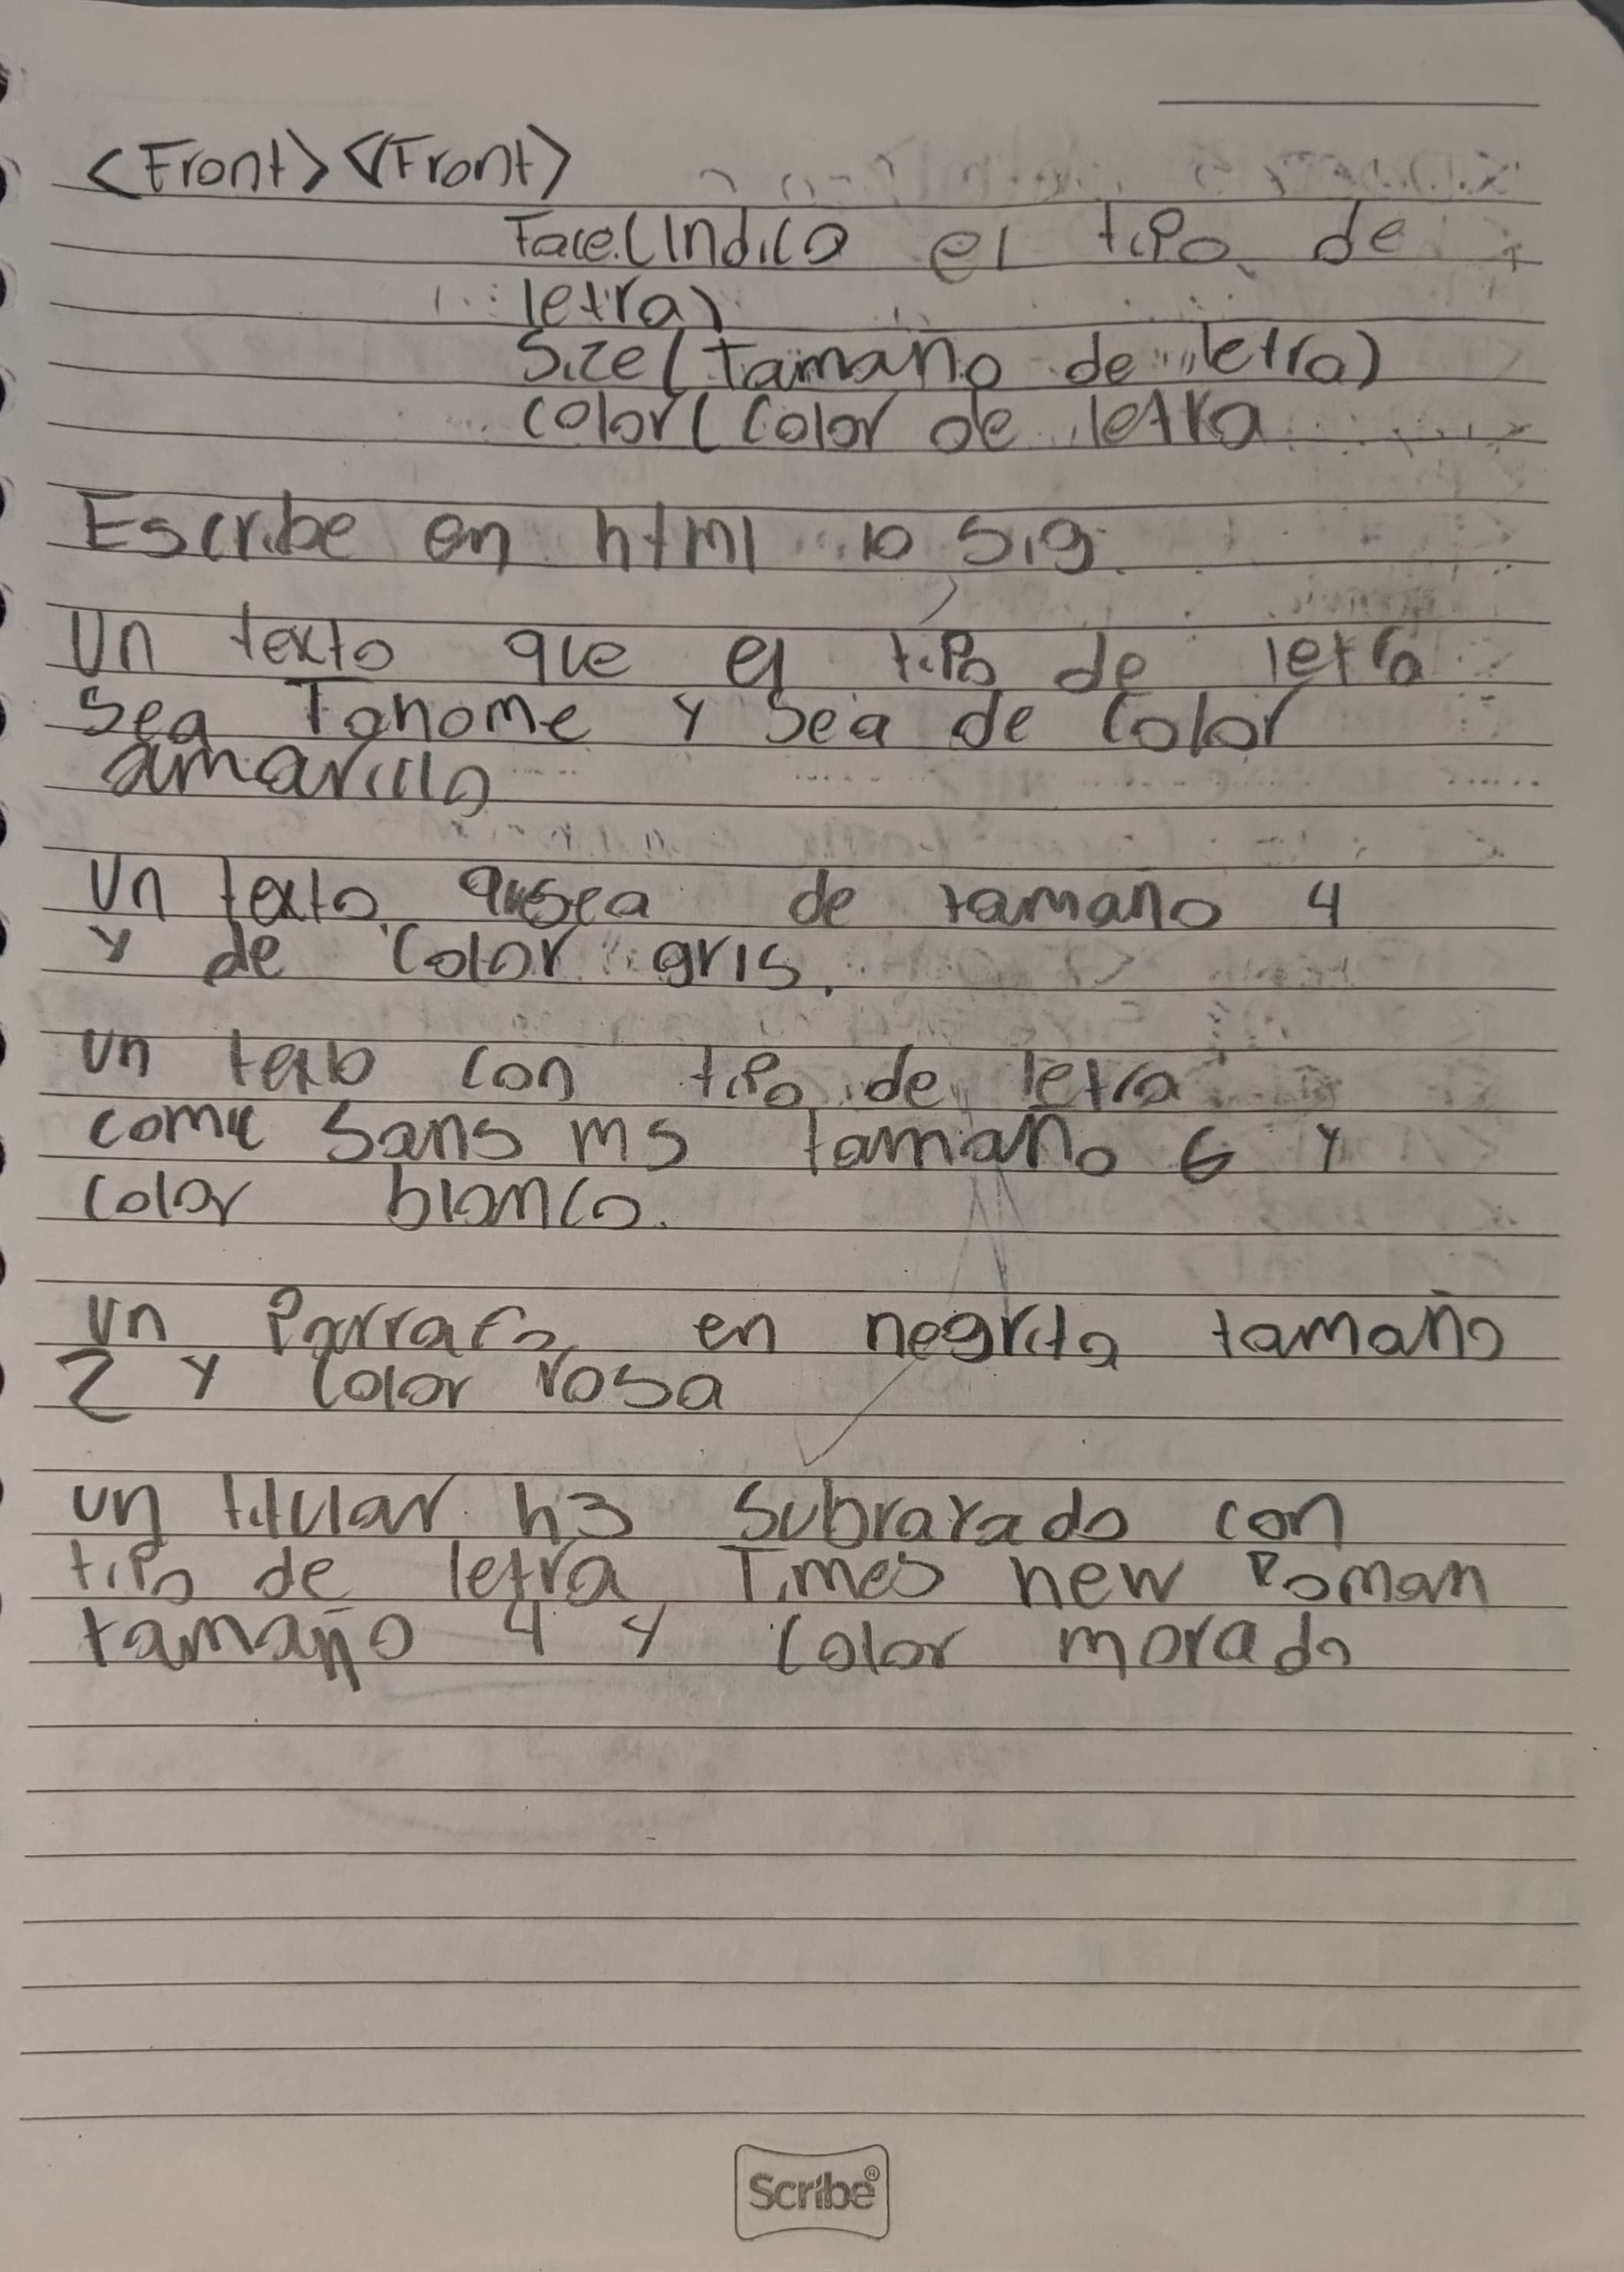 <Front></Front>
Face(Indica el tipo de
letra)
Size(Tamaño de letra)
color(Color de letra
Escribe en html lo sig.
Un texto que el tipo de letra
sea Tahome y sea de Color
amarillo
Un texto que sea de tamaño 4
y de Color gris.
un texto con tipo de letra
comic Sans ms tamaño 6 y
color blanco.
un Parrafo en negrita tamaño
2 y Color rosa
un titular h3 Subrayado con
tipo de letra Times new Roman
tamaño 4 y Color morado
Scribe®